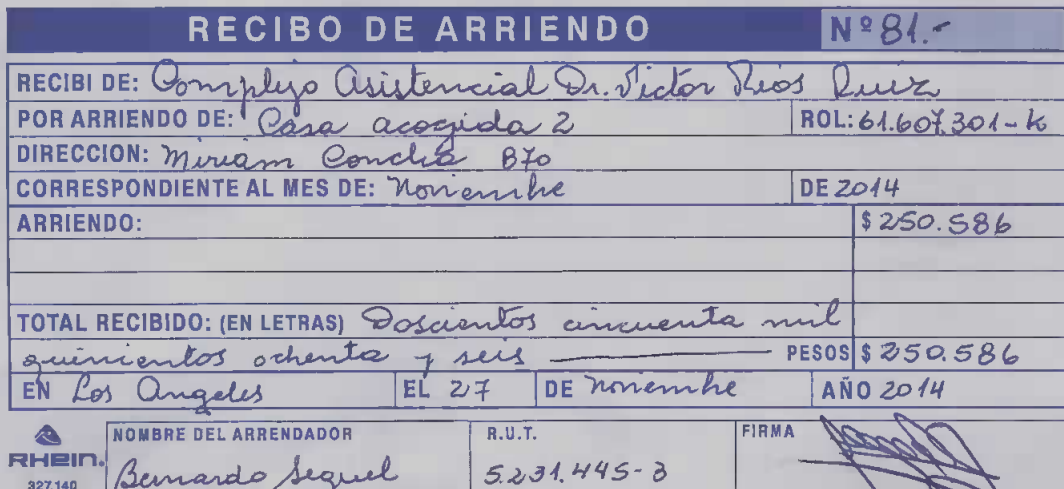 RECIBO DE ARRIENDO Nº 81.-
RECIBI DE: Complejo Asistencial Dr. Victor Rios Ruiz
POR ARRIENDO DE: Casa acogida 2 ROL: 61.607.301-K
DIRECCION: Miriam Concha 870
CORRESPONDIENTE AL MES DE: Noviembre DE 2014
ARRIENDO: $ 250.586
TOTAL RECIBIDO: (EN LETRAS) Doscientos cincuenta mil
quinientos ochenta y seis PESOS $ 250.586
EN Los Angeles EL 27 DE Noviembre AÑO 2014
NOMBRE DEL ARRENDADOR R.U.T. FIRMA
RHEIN. Bernardo Seguel 5.231.445-3
327.140